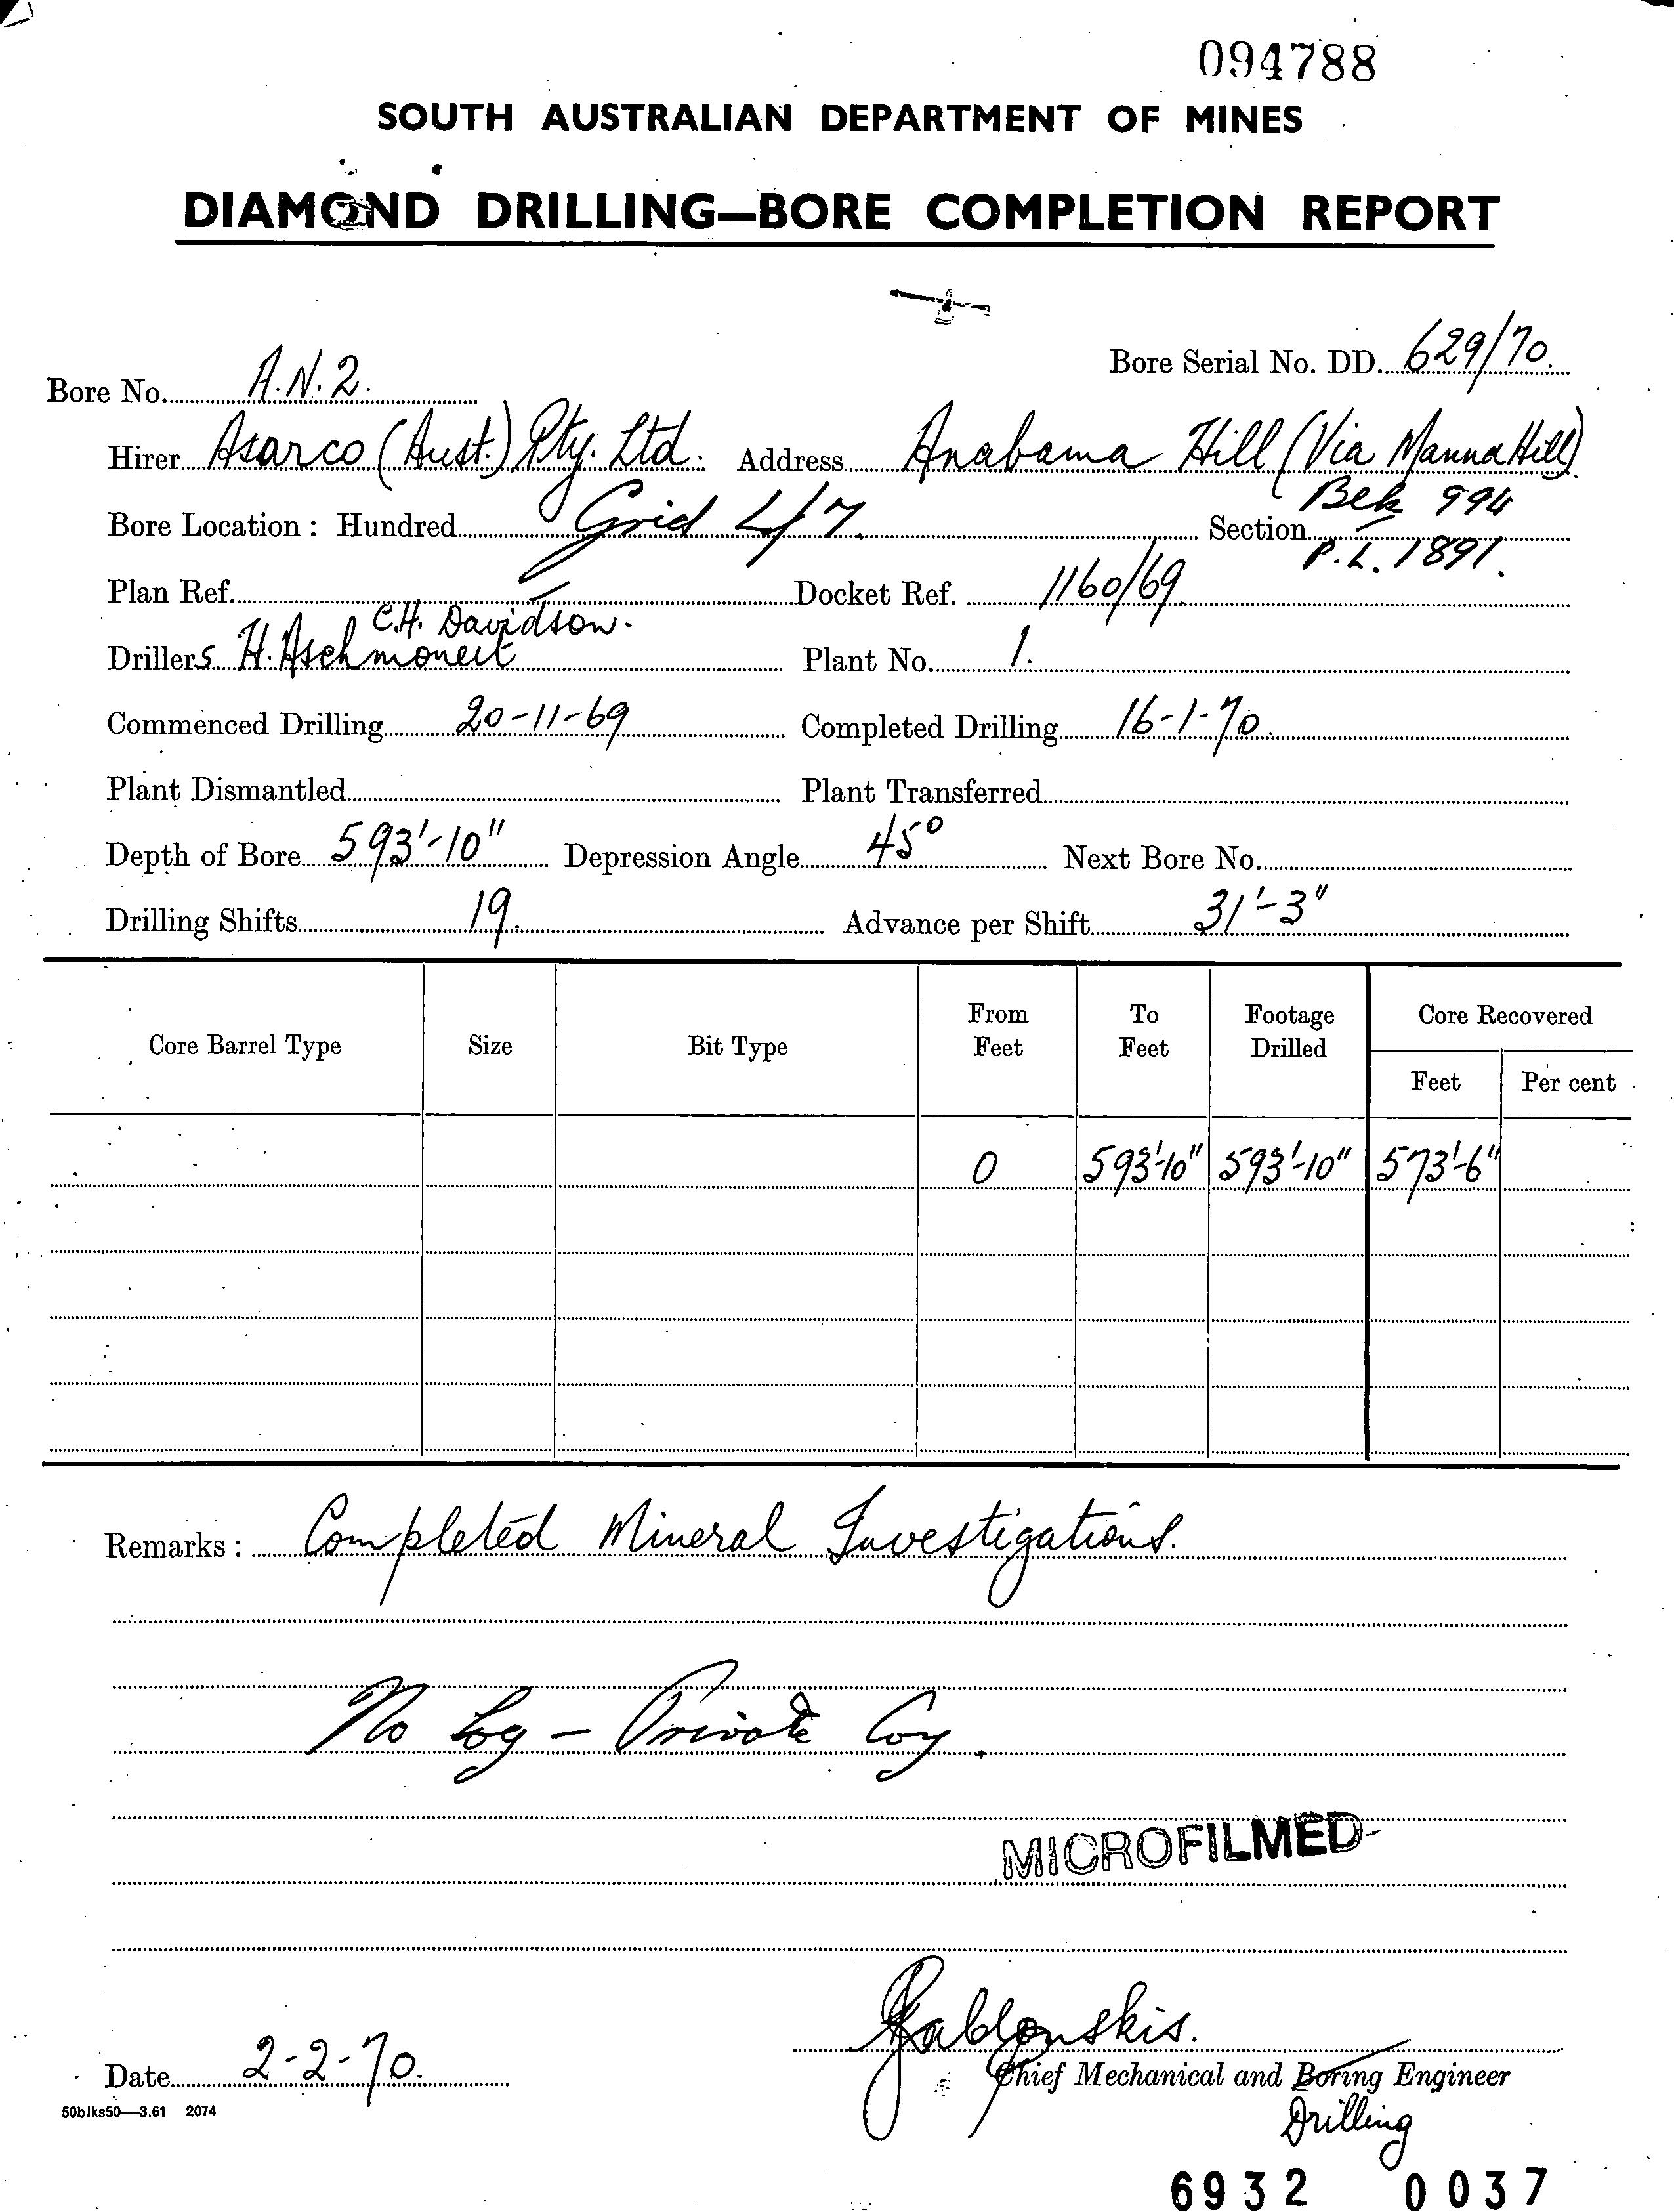 094788
SOUTH AUSTRALIAN DEPARTMENT OF MINES
DIAMOND DRILLING—BORE COMPLETION REPORT
Bore Serial No. DD. 629/70.
Bore No. A.N.2.
Hirer Asarco (Aust.) Pty. Ltd. Address Anabama Hill (Via Manna Hill)
Bore Location: Hundred Grid L/7. Section Blk 994
P.L. 1891.
Plan Ref. Docket Ref. 1160/69.
C.H. Davidson.
Drillers H. Aschmoneit Plant No. 1.
Commenced Drilling 20-11-69 Completed Drilling 16-1-70.
Plant Dismantled Plant Transferred
Depth of Bore 593'-10" Depression Angle 45° Next Bore No.
Drilling Shifts 19. Advance per Shift 31'-3"
Core Barrel Type Size Bit Type From Feet To Feet Footage Drilled Core Recovered
Feet Per cent
0 593'-10" 593'-10" 573'-6"
Remarks: Completed Mineral Investigations.
No Log - Private Coy.
MICROFILMED
Date 2-2-70.
Chief Mechanical and Boring Engineer
Drilling
50blks50—3.61 2074
6932 0037